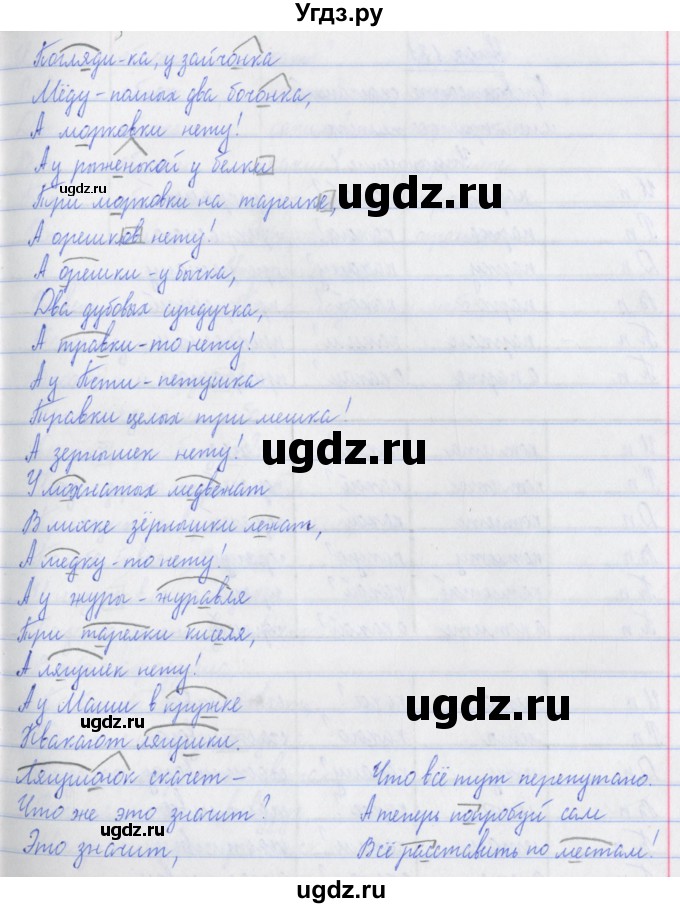 Угдз.ру
Погляди-ка, у зайчонка
Мёду - полных два бочонка,
А морковки нету!
А у рыженькой у белки
ugdz.ru
ugdz.ru
Три морковки на тарелке,
А орешков нету!
А орешки - у бычка,
Два дубовых сундучка,
А травки-то нету!
ugdz.ru
А у Пети - петушка
Травки целых три мешка!
ugdz.ru
А зернышек нету!
У мохнатых медвежат
В миске зёрнышки лежат,
ugdz.ru
А медку-то нету!
А у журы - журавля
Три тарелки киселя,
А лягушек нету!
А у Маши в кружке
ugdz.ru
ugdz.ru
Квакают лягушки.
Лягушонок скачет -
Что же это значит?
ugdz.ru
Это значит,
Что всё тут перепутано.
А теперь попробуй сам
Всё расставить по местам!
ugdz.ru